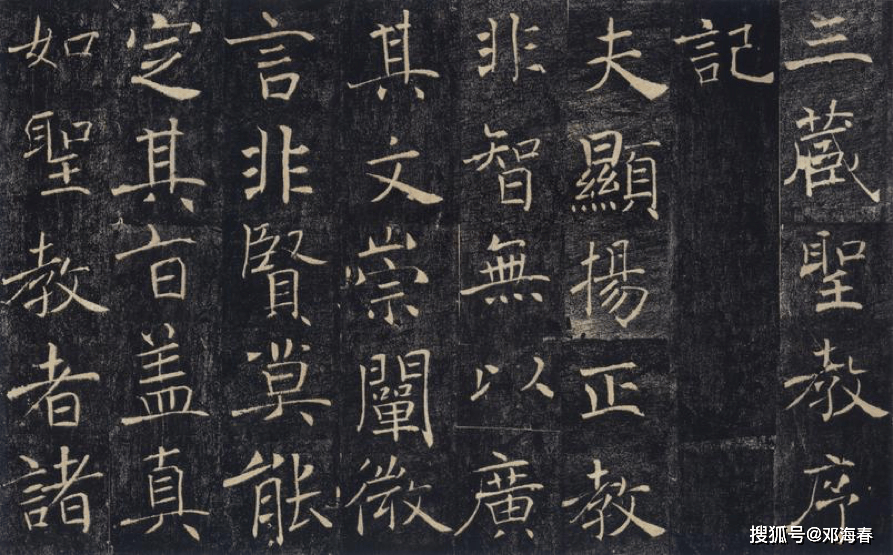 三藏聖教序
記
夫顯揚正教
非智無以廣
其文崇闡微
言非賢莫能
定其旨盖真
如聖教者諸
搜狐号@邓海春